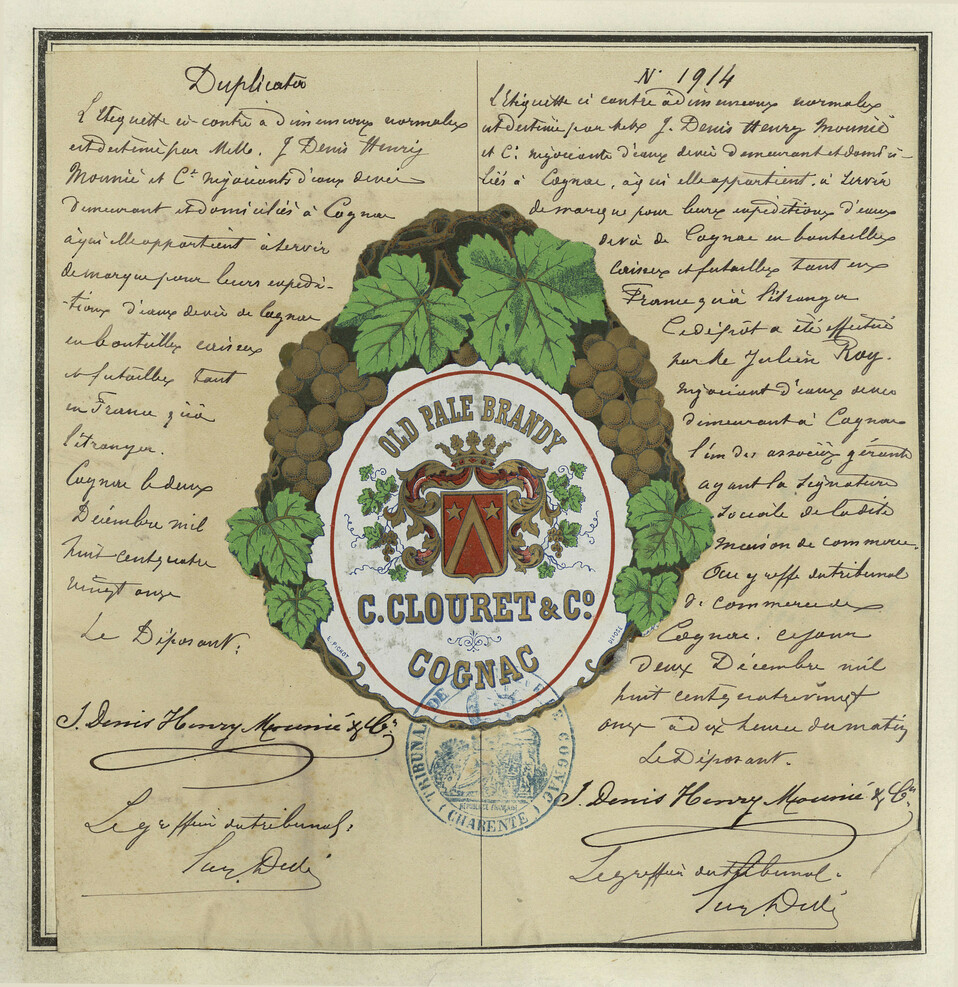 Duplicata
L'Etiquette ci-contre à dimensions normales
est destinée par MMrs. J Denis Henry
Mounié et Cie négociants d'eaux de vie
demeurant et domiciliés à Cognac
à qui elle appartient à servir
de marque pour leurs expédi-
-tions d'eaux de vie de Cognac
en bouteilles caisses
et futailles tant
en France qu'à
l'étranger.
Cognac le deux
Décembre mil
huit cent quatre
vingt onze
Le Déposant.
J. Denis Henry Mounié & Co.
Le greffier du tribunal.
N° 1914
L'Etiquette ci contre à dimensions normales
est destinée par MMrs J. Denis Henry Mounié
et Cie négociants d'eaux de vie demeurant et domici-
liés à Cognac, à qui elle appartient, à servir
de marque pour leurs expéditions d'eaux
de vie de Cognac en bouteilles
caisses et futailles tant en
France qu'à l'étranger
Ce dépôt a été effectué
par Mr Julien Roy.
négociant d'eaux de vie
demeurant à Cognac
l'un des associés gérants
ayant la signature
sociale de la dite
maison de commerce.
Au greffe du tribunal
de commerce de
Cognac. ce jour
deux Décembre mil
huit cent quatre vingt
onze à dix heures du matin
Le Déposant.
J. Denis Henry Mounié & Co.
Le greffier du tribunal.
OLD PALE BRANDY
C. CLOURET & Co
COGNAC
L. PICHOT
DÉPOSÉ
TRIBUNAL DE COGNAC
RÉPUBLIQUE FRANÇAISE
(CHARENTE)